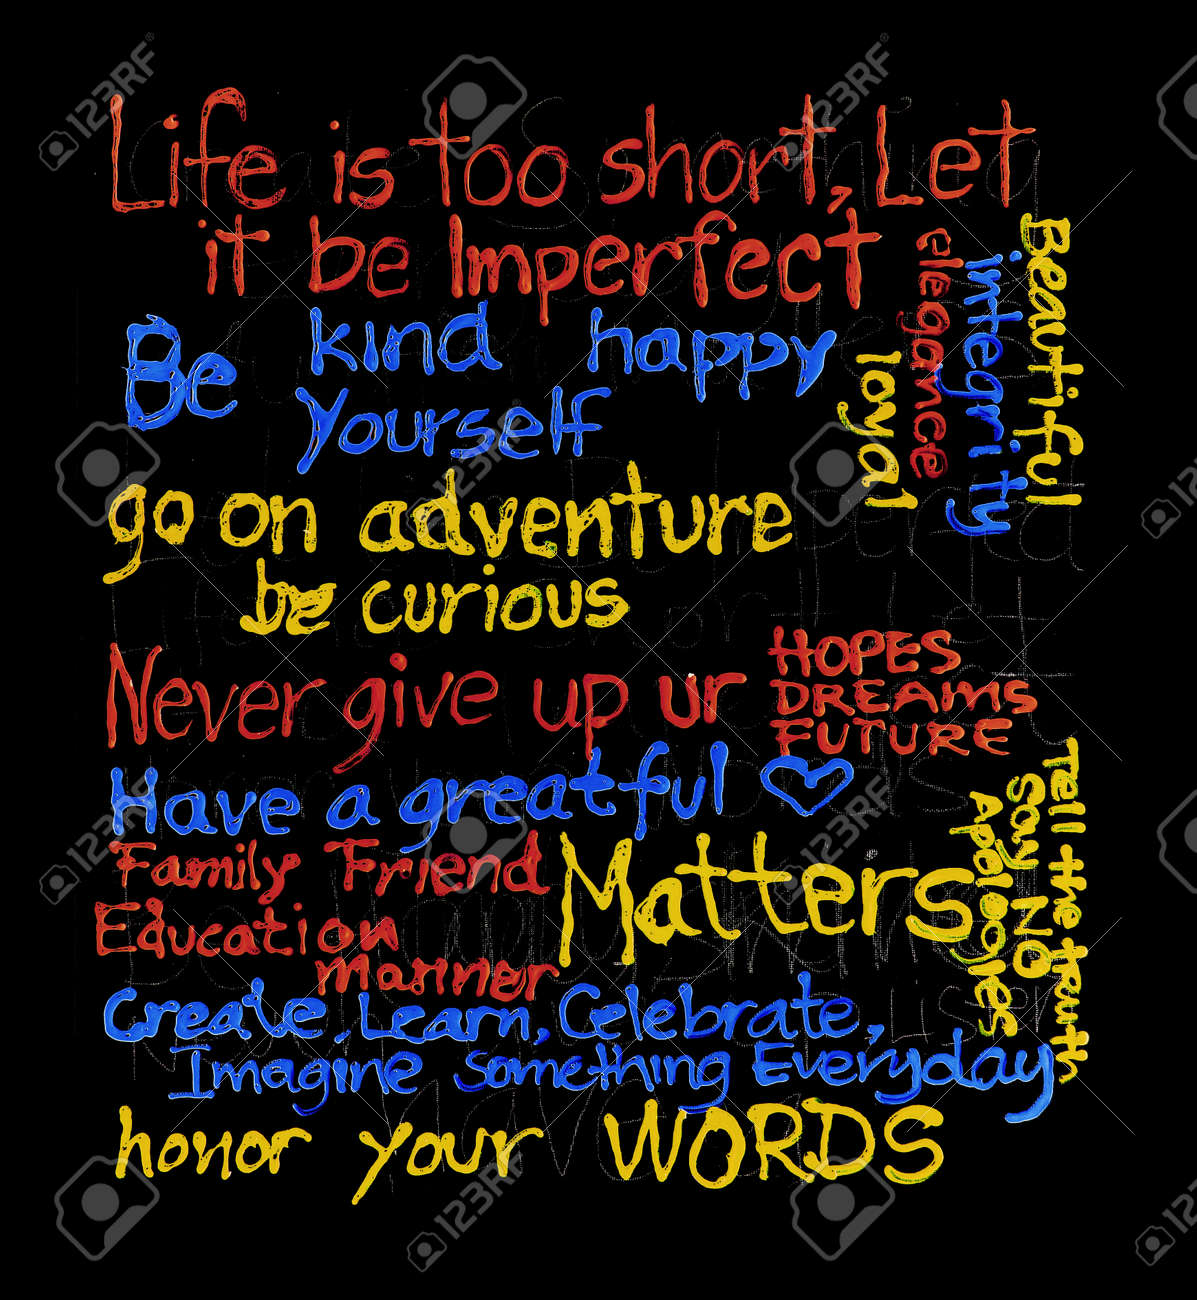 Life is too short, Let
it be Imperfect
Be kind happy
yourself
go on adventure
be curious
loyal
elegance
integrity
Beautiful
Never give up ur
HOPES
DREAMS
FUTURE
Have a greatful
Family Friend
Education
Manner
Matters
Apologies
Say NO
Tell the truth
Create, Learn, Celebrate,
Imagine Something Everyday
honor your WORDS
123RF